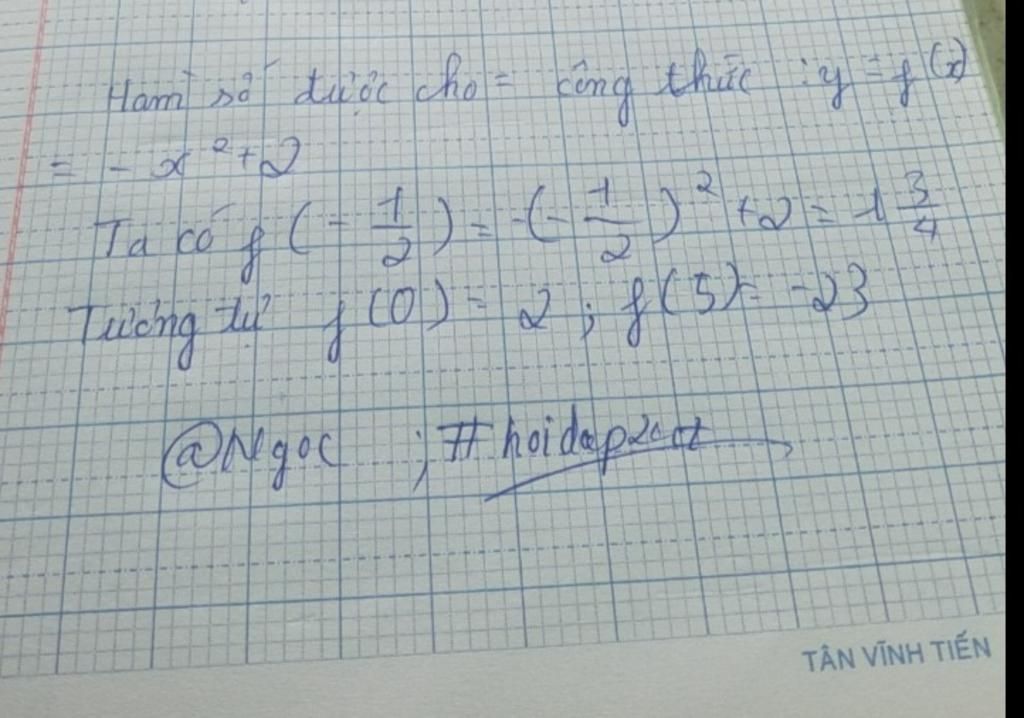 Hàm số được cho = công thức : y = f(x)
= - x² + 2
Ta có f(-1/2) = -(-1/2)² + 2 = 1 3/4
Tương tự f(0) = 2 ; f(5) = -23
@Ngoc ; #hoidap247
TÂN VĨNH TIẾN